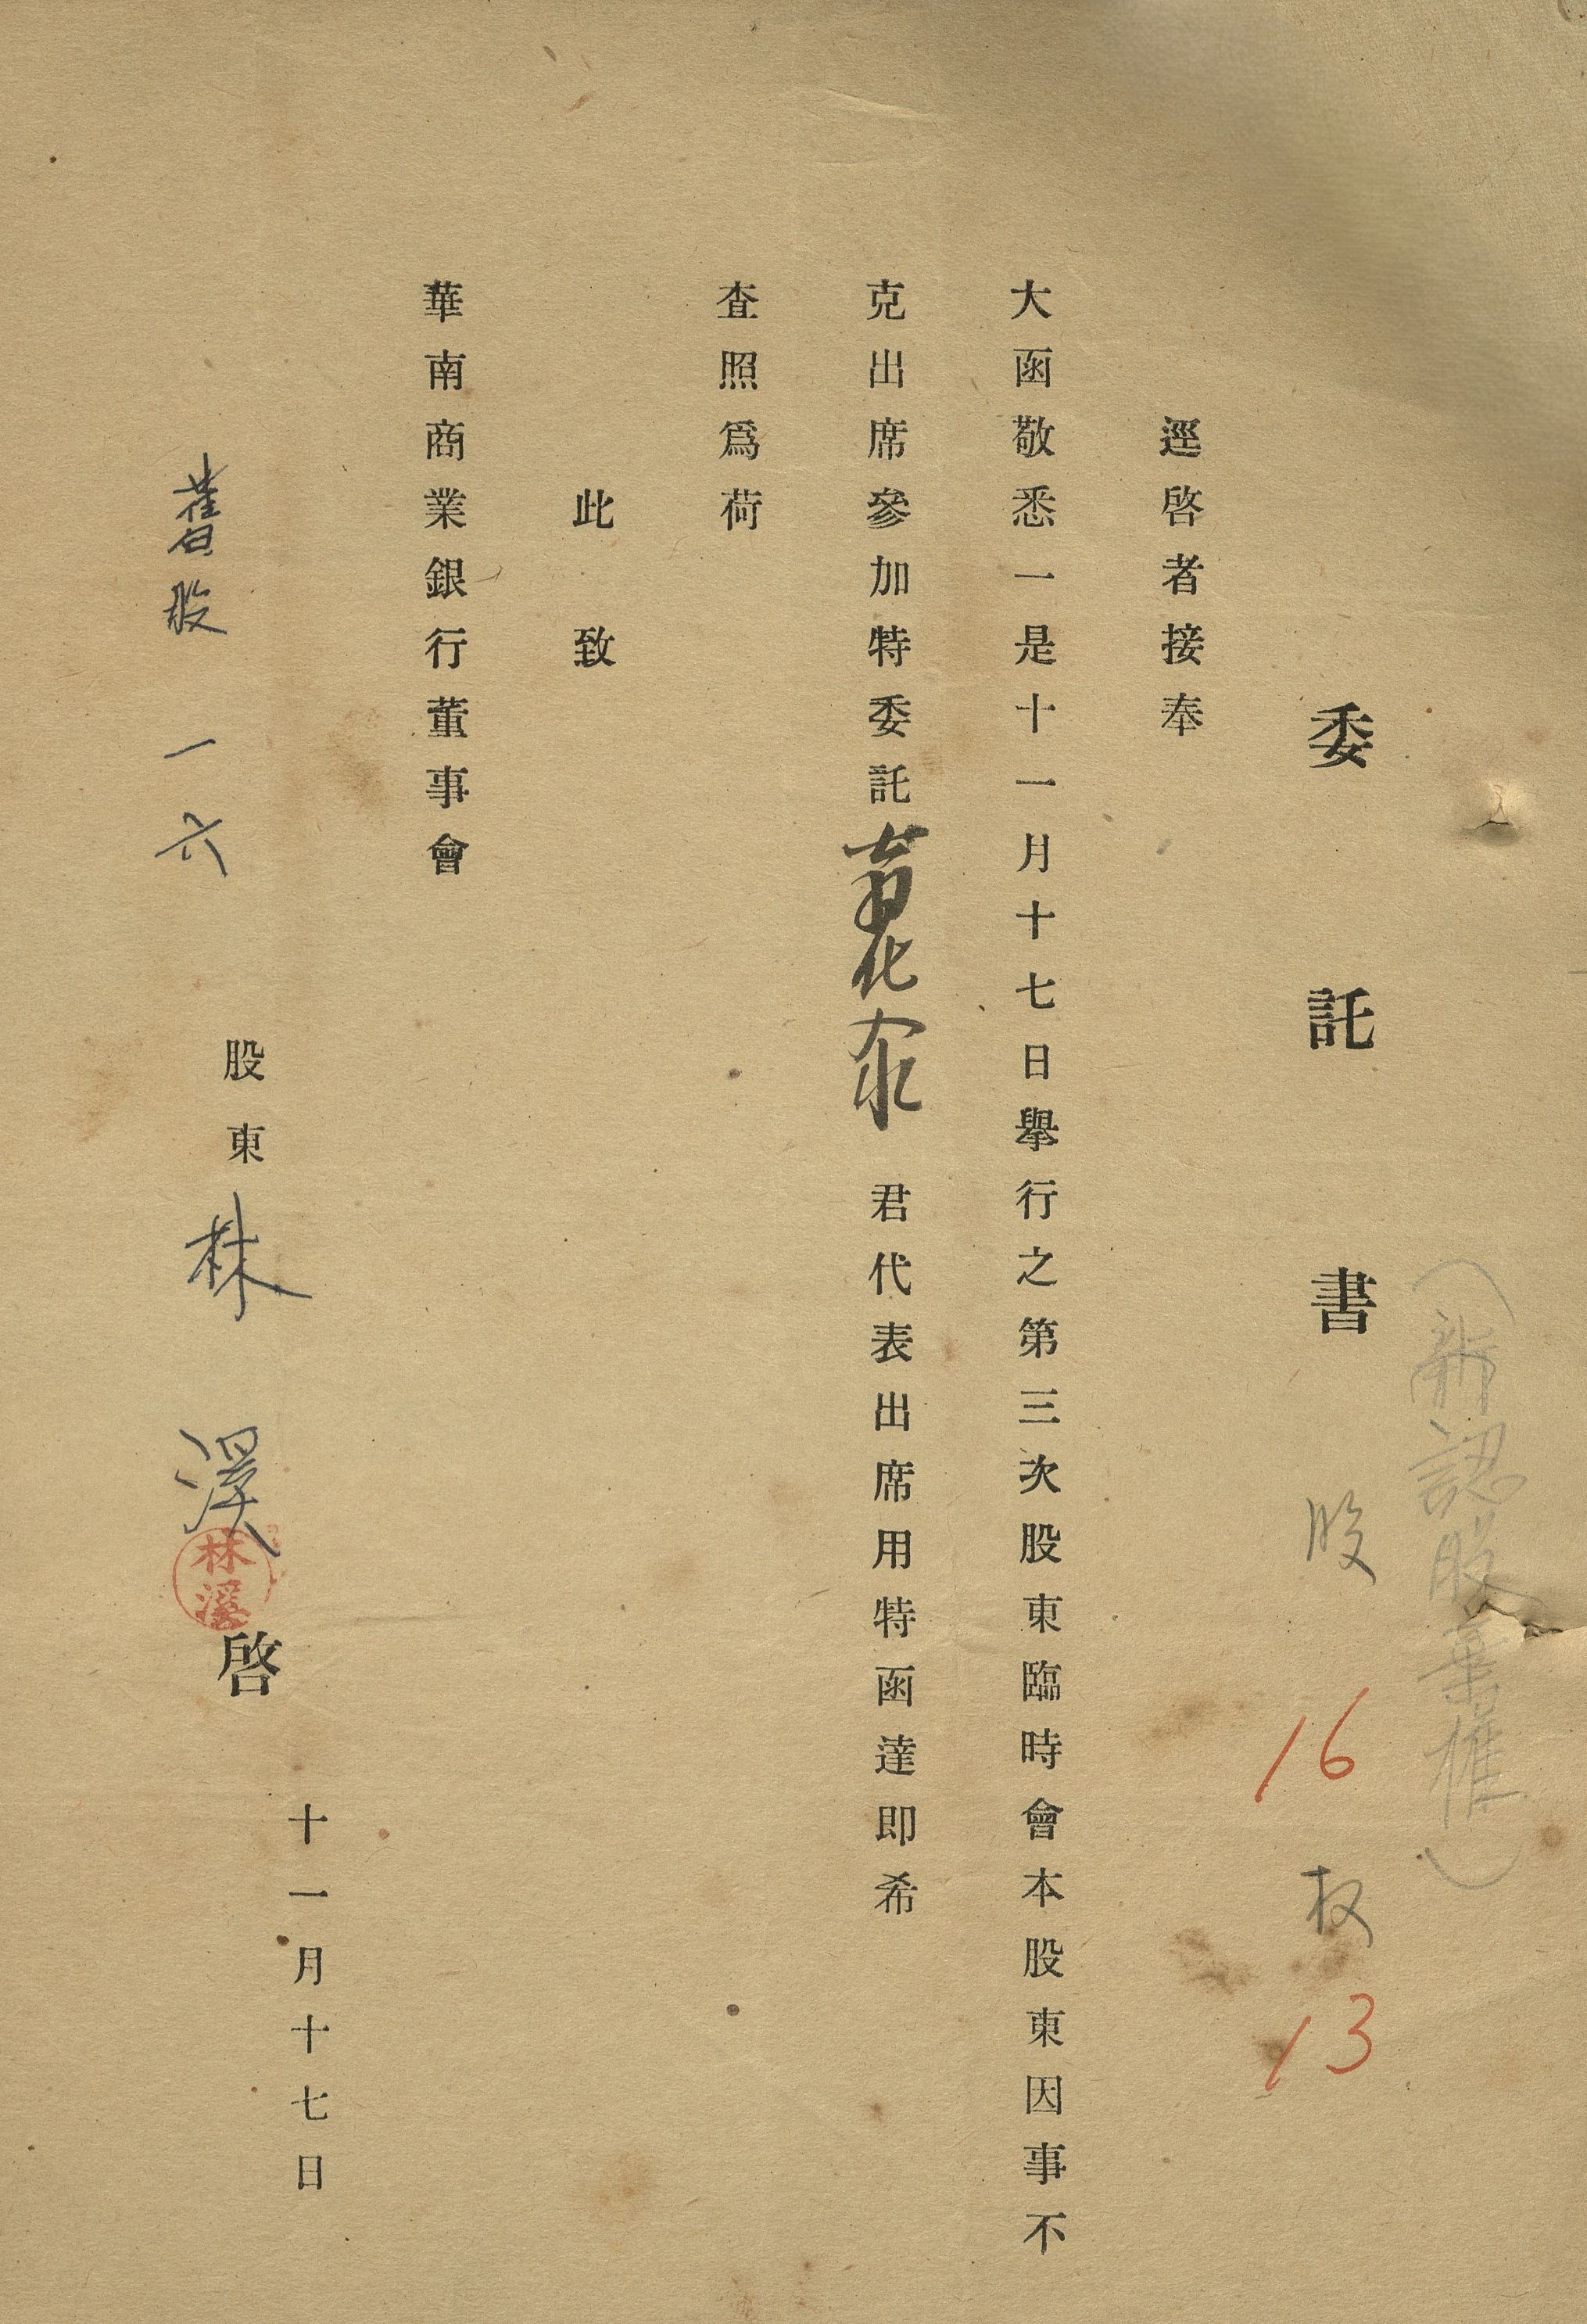 （新認股棄權）
委託書 股 16 权 13
逕啓者接奉
大函敬悉一是十一月十七日舉行之第三次股東臨時會本股東因事不
克出席參加特委託 君代表出席用特函達即希
查照爲荷
此致
華南商業銀行董事會
十一月十七日
股東 林溪 啓
林溪
舊股 一六